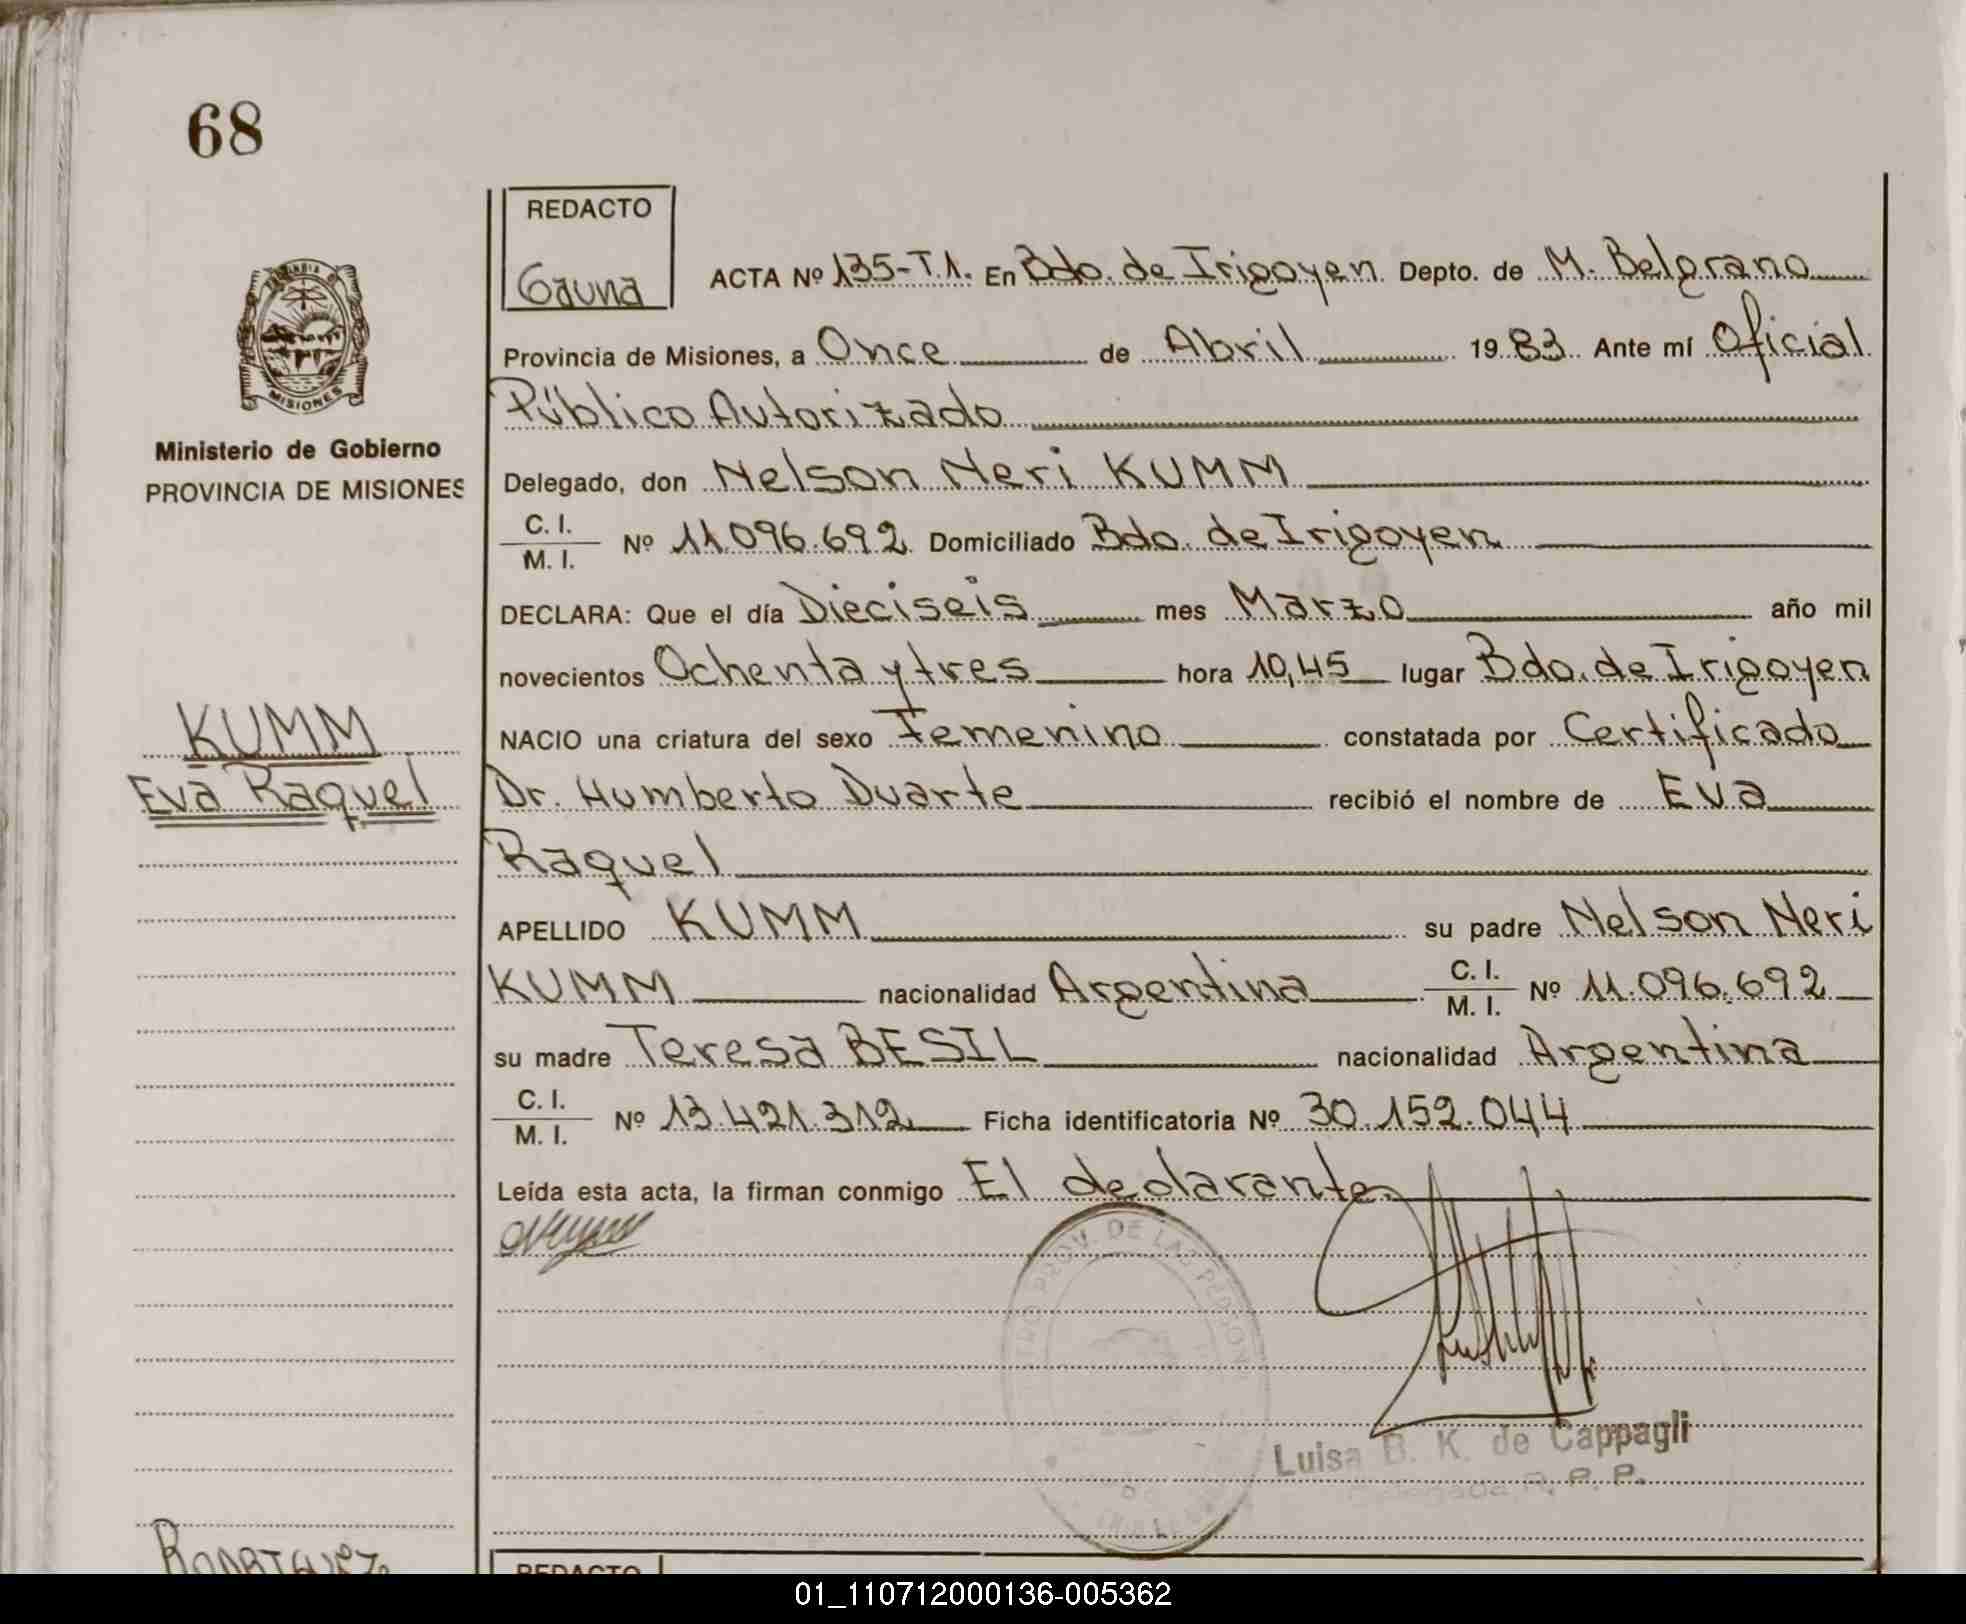 68
REDACTO
Gauna
ACTA Nº 135-T.1. En Bdo. de Irigoyen Depto. de M. Belgrano
Provincia de Misiones, a Once de Abril 1983 Ante mí Oficial
Público Autorizado
Ministerio de Gobierno
PROVINCIA DE MISIONES
Delegado, don Nelson Neri KUMM
C. I.
M. I. Nº 11.096.692 Domiciliado Bdo. de Irigoyen
DECLARA: Que el día Dieciseis mes Marzo año mil
novecientos Ochenta y tres hora 10,45 lugar Bdo. de Irigoyen
KUMM
Eva Raquel
NACIO una criatura del sexo Femenino constatada por Certificado
Dr. Humberto Duarte recibió el nombre de Eva
Raquel
APELLIDO KUMM su padre Nelson Neri
KUMM nacionalidad Argentina C. I. M. I. Nº 11.096.692
su madre Teresa BESIL nacionalidad Argentina
C. I.
M. I. Nº 13.421.312 Ficha identificatoria Nº 30.152.044
Leída esta acta, la firman conmigo El declarante.
PROV. DE LAS PERSON
Luisa B. K. de Cappagli
Delegada R. P. P.
REDACTO
01_110712000136-005362